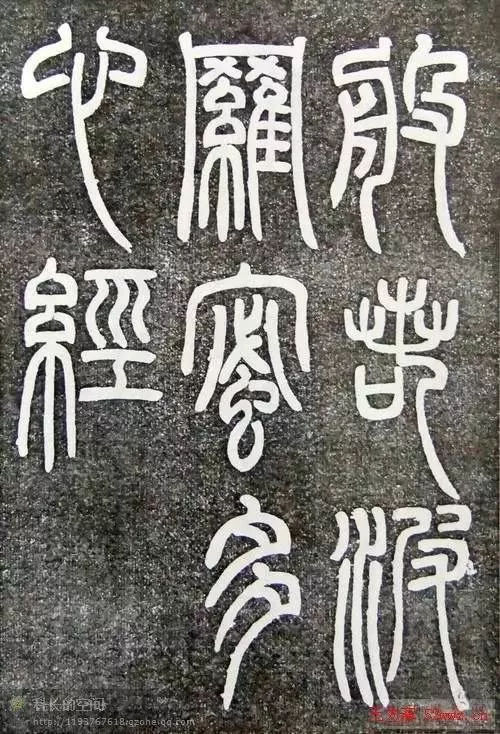 般若波
羅蜜多
心經
科长的空间
http://1193767618.qzone.qq.com